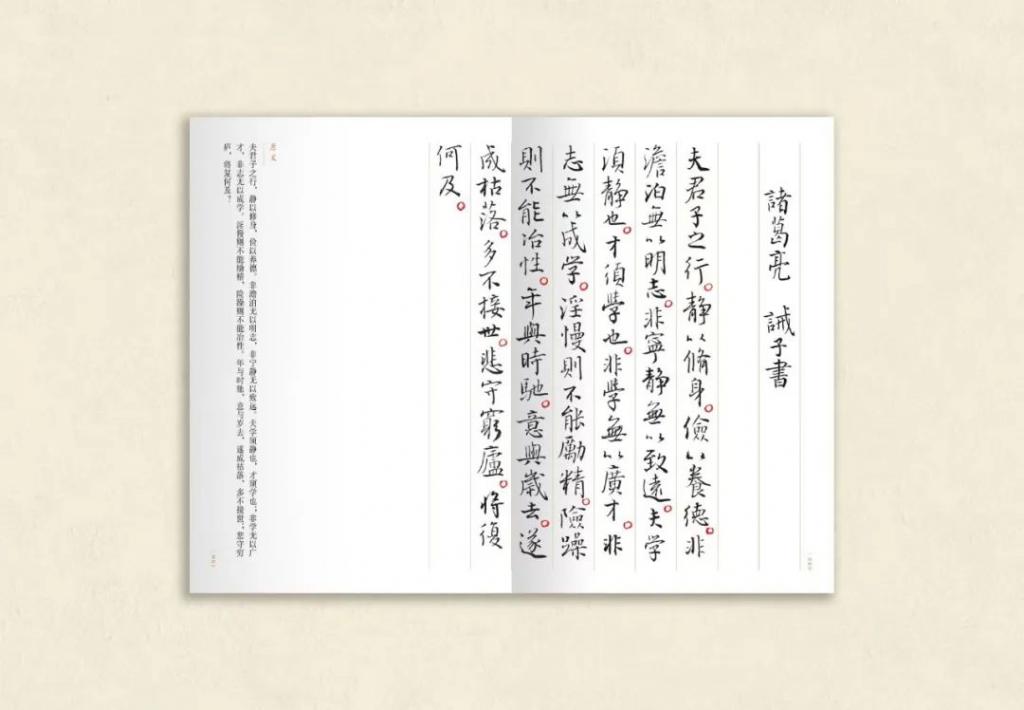 諸葛亮 誡子書
夫君子之行。静以脩身。儉以養德。非
澹泊無以明志。非寧静無以致遠夫学
須静也。才須學也。非學無以廣才。非
志無以成学。淫慢則不能勵精。險躁
則不能冶性。年與時馳。意與歲去。遂
成枯落。多不接世。悲守窮廬。將復
何及。
原文
夫君子之行，静以修身，俭以养德。非澹泊无以明志，非宁静无以致远。夫学须静也，才须学也，非学无以广
才，非志无以成学。淫慢则不能励精，险躁则不能治性。年与时驰，意与岁去，遂成枯落，多不接世，悲守穷
庐，将复何及？